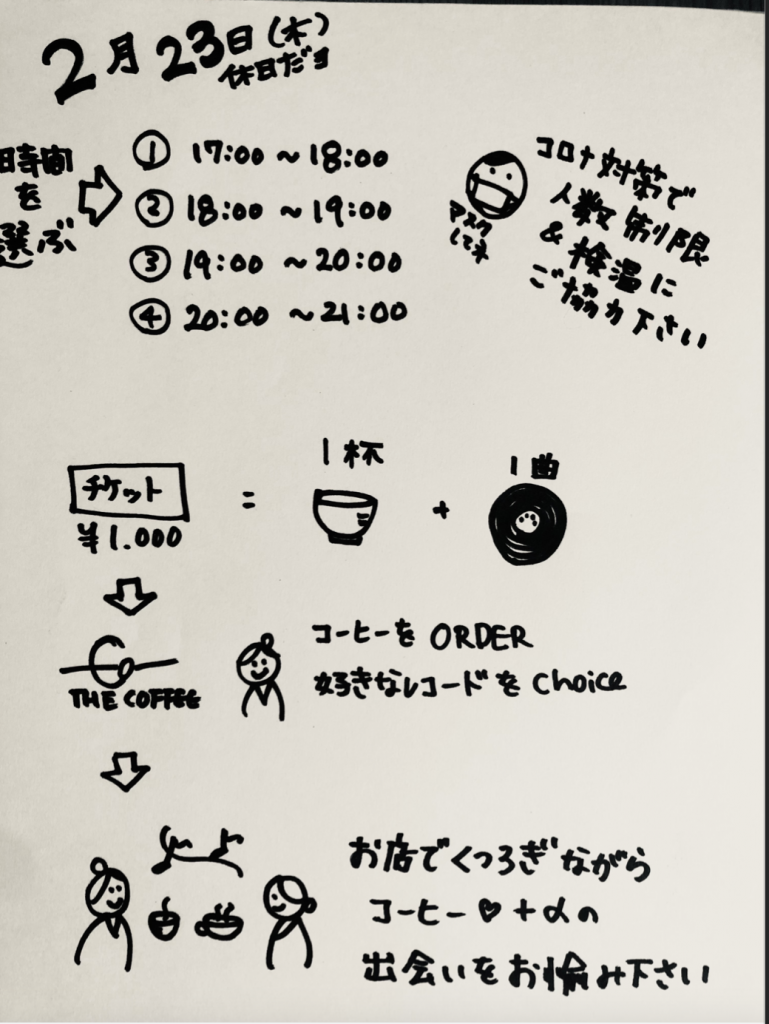 2月23日(木)
休日だヨ
時間
を
選ぶ
① 17:00 ~ 18:00
② 18:00 ~ 19:00
③ 19:00 ~ 20:00
④ 20:00 ~ 21:00
マスク
してネ
コロナ対策で
人数制限
& 検温に
ご協力下さい
チケット
¥1.000
=
1杯
+
1曲
THE COFFEE
コーヒーを ORDER
好きなレコードを Choice
お店でくつろぎながら
コーヒー♡+αの
出会いをお愉み下さい